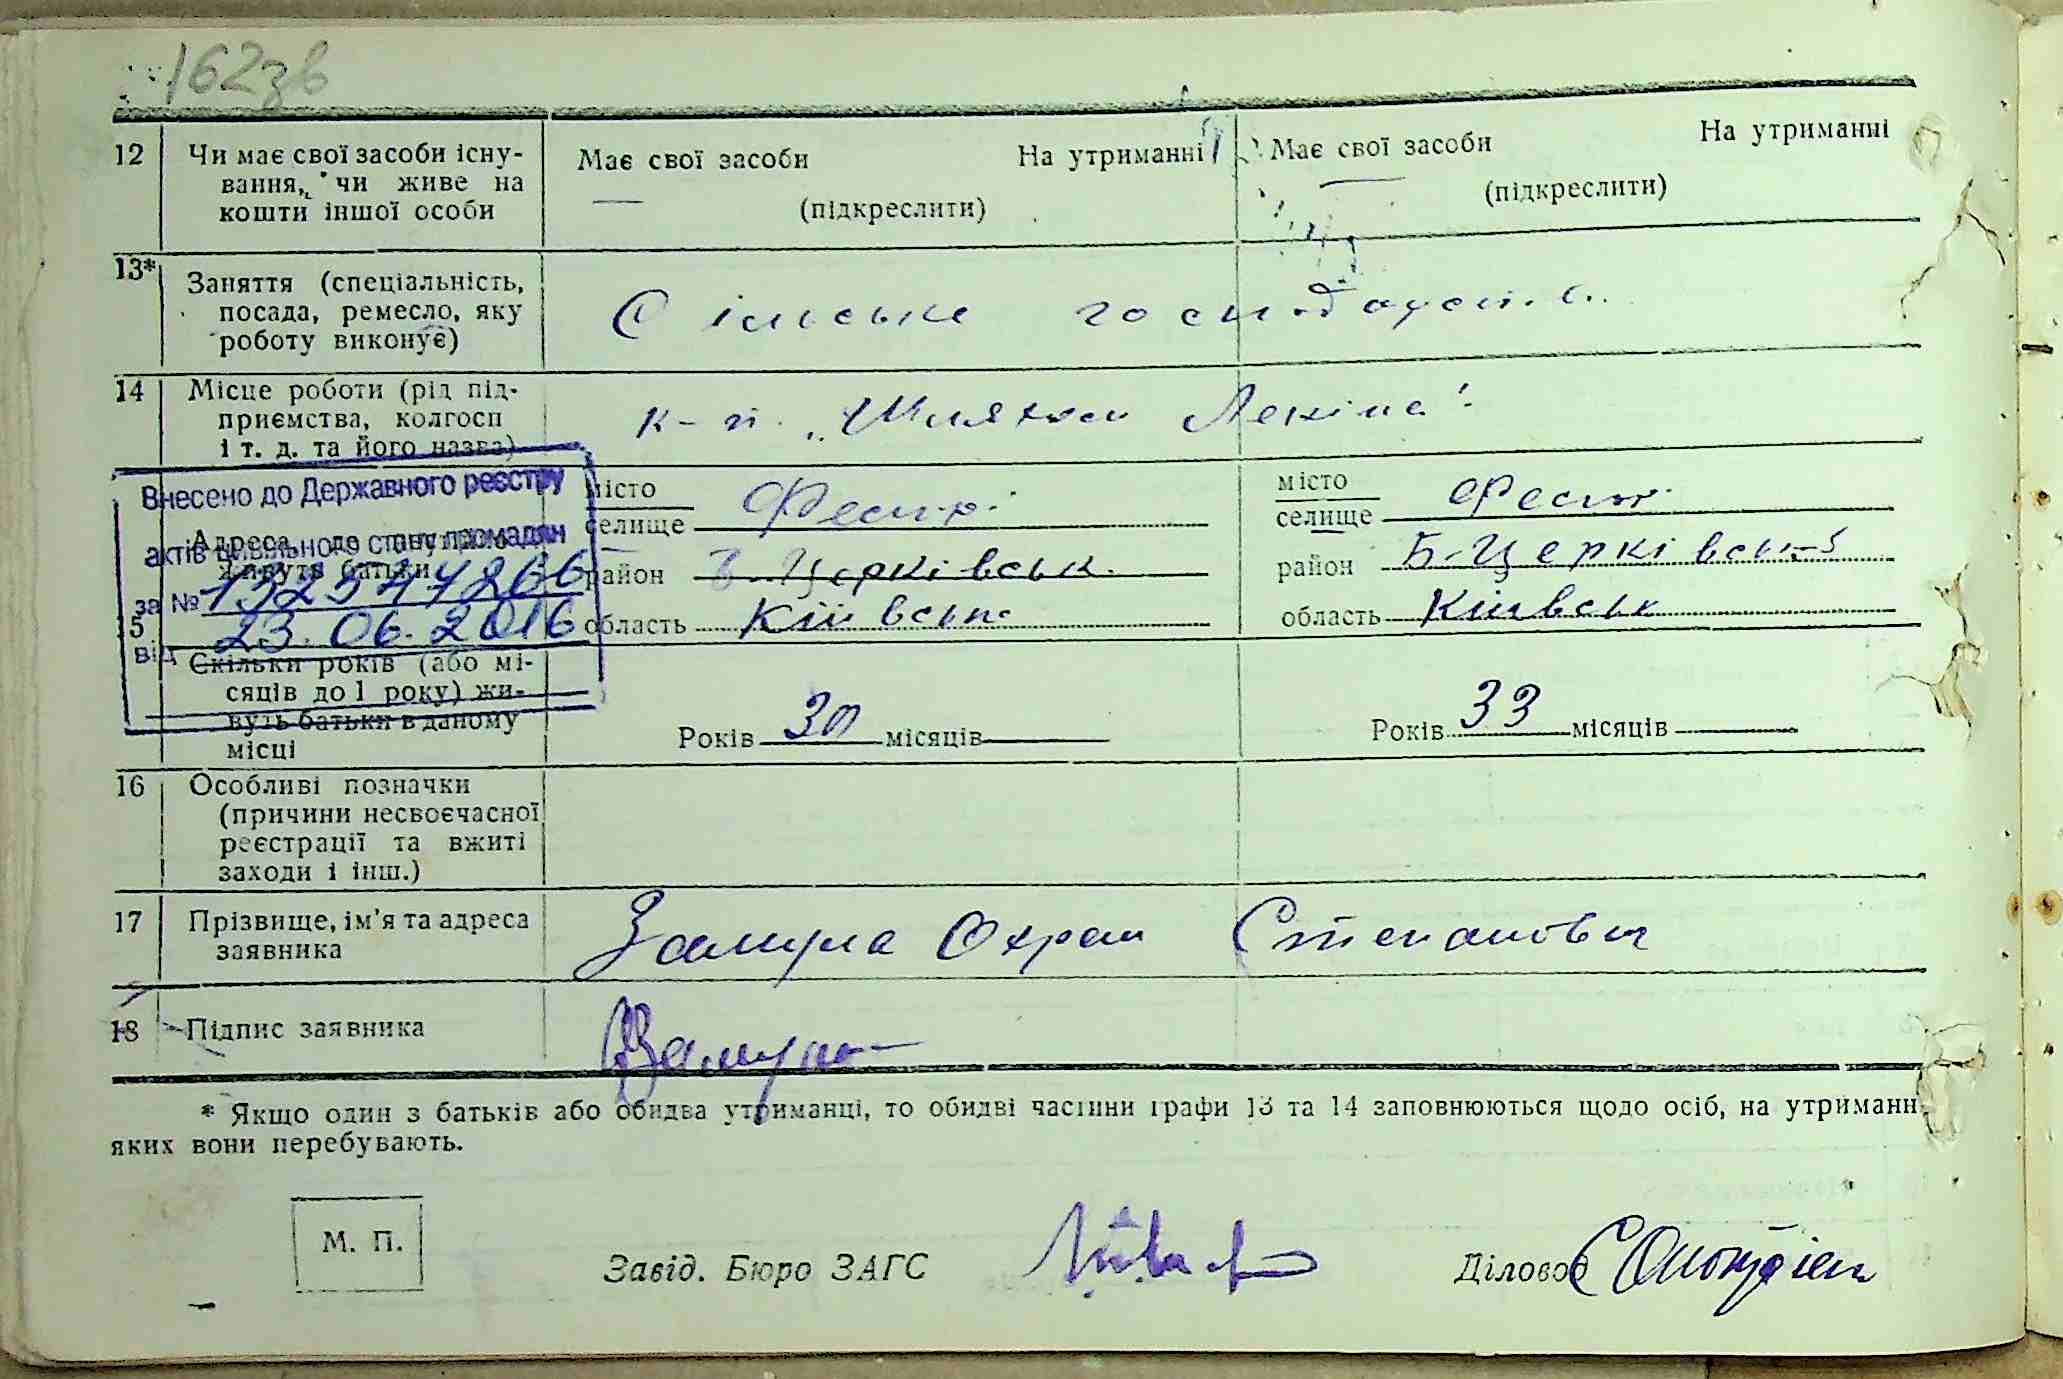 162зв
12 Чи має свої засоби існу- Має свої засоби На утриманні Має свої засоби На утриманні
вання, чи живе на (підкреслити) (підкреслити)
кошти іншої особи
13* Заняття (спеціальність,
посада, ремесло, яку Сільське
роботу виконує)
14 Місце роботи (рід під-
приємства, колгосп к-п. „Шляхом Леніна"
і т. д. та його назва)
Внесено до Державного реєстру
актів цивільного стану громадян
за № 1325477266
від 23.06.2016
Адреса, де
живуть батьки
місто місто
селище селище
район Церківськ. район Б-Церківськ
область Київськ область Київськ
15 Скільки років (або мі-
сяців до 1 року) жи-
вуть батьки в даному Років 30 місяців Років 33 місяців
місці
16 Особливі позначки
(причини несвоєчасної
реєстрації та вжиті
заходи і інш.)
17 Прізвище, ім'я та адреса
заявника Замула Охрем Степанович
18 Підпис заявника Замула
* Якщо один з батьків або обидва утриманці, то обидві частини графи 13 та 14 заповнюються щодо осіб, на утриманн
яких вони перебувають.
М. П.
Завід. Бюро ЗАГС Діловод